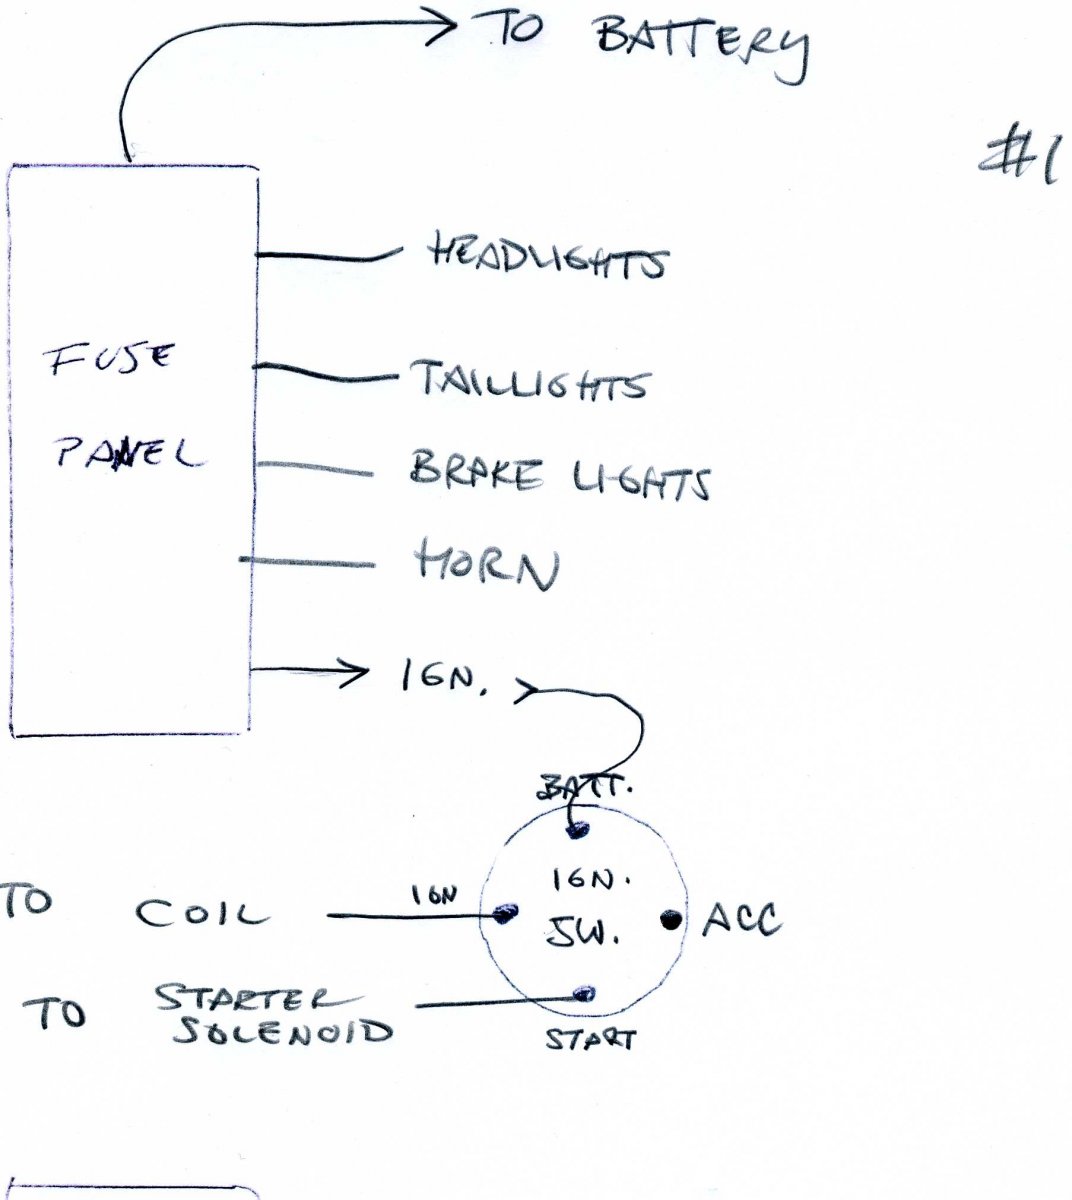 TO BATTERY
#1
HEADLIGHTS
FUSE
PANEL
TAILLIGHTS
BRAKE LIGHTS
HORN
IGN.
BATT.
IGN.
SW.
TO COIL
IGN
ACC
TO STARTER
SOLENOID
START